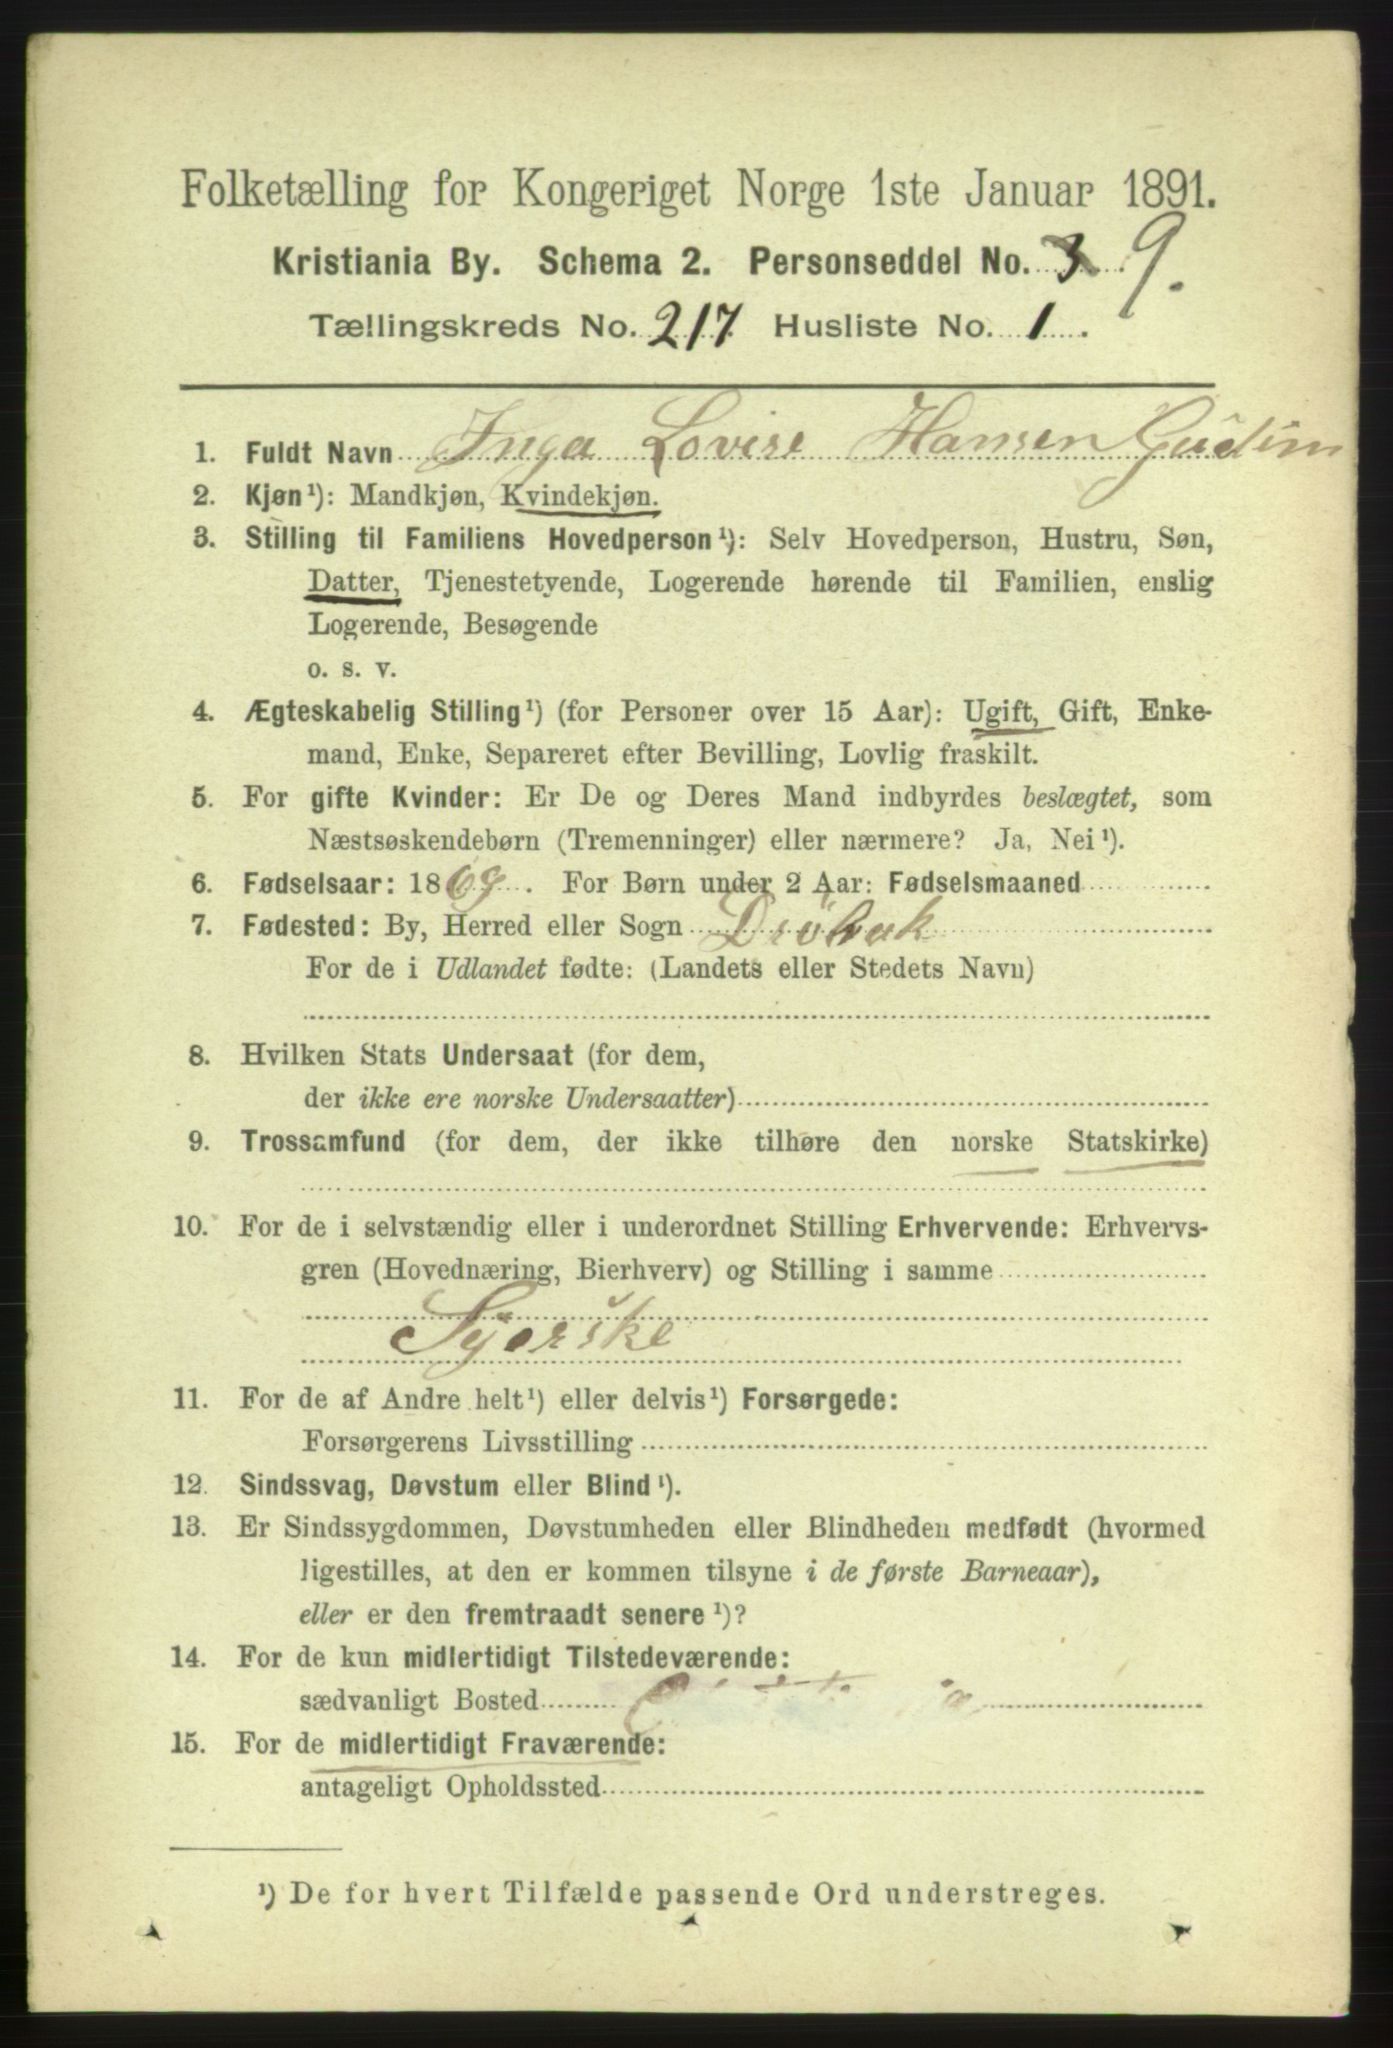 Folketælling for Kongeriget Norge 1ste Januar 1891.
Kristiania By. Schema 2. Personseddel No. 3 9.
Tællingskreds No. 217 Husliste No. 1.
1. Fuldt Navn Inga Lovise Hansen Gudim
2. Kjøn¹): Mandkjøn, Kvindekjøn.
3. Stilling til Familiens Hovedperson¹): Selv Hovedperson, Hustru, Søn,
Datter, Tjenestetyende, Logerende hørende til Familien, enslig
Logerende, Besøgende
o. s. v.
4. Ægteskabelig Stilling¹) (for Personer over 15 Aar): Ugift, Gift, Enke-
mand, Enke, Separeret efter Bevilling, Lovlig fraskilt.
5. For gifte Kvinder: Er De og Deres Mand indbyrdes beslægtet, som
Næstsøskendebørn (Tremenninger) eller nærmere? Ja, Nei¹).
6. Fødselsaar: 1869. For Børn under 2 Aar: Fødselsmaaned
7. Fødested: By, Herred eller Sogn Dröbak
For de i Udlandet fødte: (Landets eller Stedets Navn)
8. Hvilken Stats Undersaat (for dem,
der ikke ere norske Undersaatter)
9. Trossamfund (for dem, der ikke tilhøre den norske Statskirke)
10. For de i selvstændig eller i underordnet Stilling Erhvervende: Erhvervs-
gren (Hovednæring, Bierhverv) og Stilling i samme
Syerske
11. For de af Andre helt¹) eller delvis¹) Forsørgede:
Forsørgerens Livsstilling
12. Sindssvag, Døvstum eller Blind¹).
13. Er Sindssygdommen, Døvstumheden eller Blindheden medfødt (hvormed
ligestilles, at den er kommen tilsyne i de første Barneaar),
eller er den fremtraadt senere¹)?
14. For de kun midlertidigt Tilstedeværende:
sædvanligt Bosted
15. For de midlertidigt Fraværende:
antageligt Opholdssted
¹) De for hvert Tilfælde passende Ord understreges.